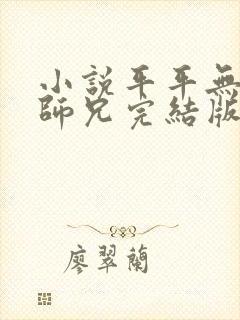 小說平平無
師兄完結版
廖翠蘭